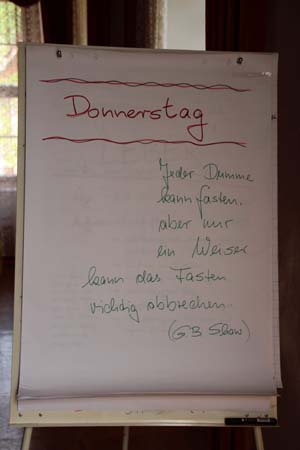 Donnerstag
Jeder Dumme
kann fasten,
aber nur
ein Weiser
kann das Fasten
richtig abbrechen.
(G.B. Shaw)